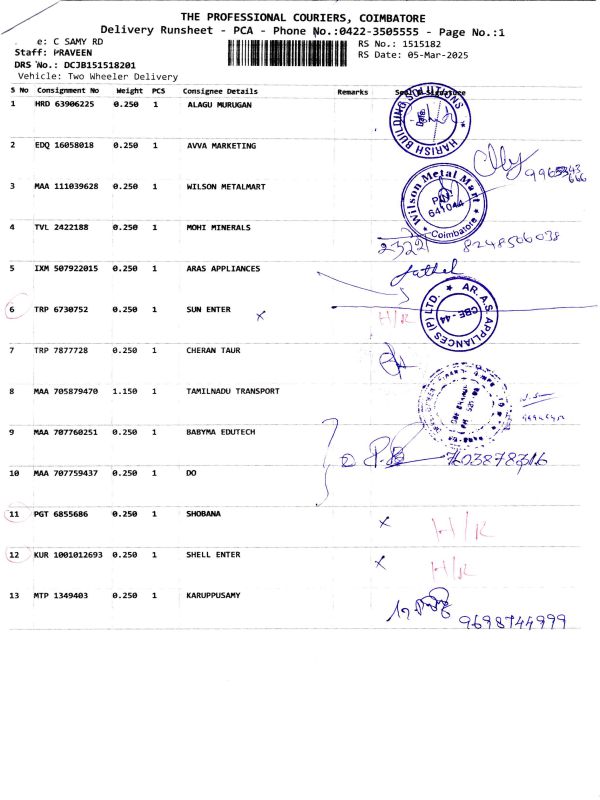 THE PROFESSIONAL COURIERS, COIMBATORE
Delivery Runsheet - PCA - Phone No.:0422-3505555 - Page No.:1
e: C SAMY RD
Staff: PRAVEEN
DRS No.: DCJB151518201
Vehicle: Two Wheeler Delivery
RS No.: 1515182
RS Date: 05-Mar-2025
S No Consignment No Weight PCS Consignee Details Remarks Seal & Signature
1 HRD 63906225 0.250 1 ALAGU MURUGAN
HARISH BUILDING SOLUTIONS
2 EDQ 16058018 0.250 1 AVVA MARKETING
3 MAA 111039628 0.250 1 WILSON METALMART
Wilson Metal Mart
PIN
641044
Coimbatore
4 TVL 2422188 0.250 1 MOHI MINERALS
8248506038
5 IXM 507922015 0.250 1 ARAS APPLIANCES
AR.A.S. APPLIANCES (P) LTD.
CBE-44
6 TRP 6730752 0.250 1 SUN ENTER x H/R
7 TRP 7877728 0.250 1 CHERAN TAUR
8 MAA 705879470 1.150 1 TAMILNADU TRANSPORT
9 MAA 707760251 0.250 1 BABYMA EDUTECH
10 MAA 707759437 0.250 1 DO
11 PGT 6855686 0.250 1 SHOBANA x H/R
12 KUR 1001012693 0.250 1 SHELL ENTER x H/R
13 MTP 1349403 0.250 1 KARUPPUSAMY
9698744999